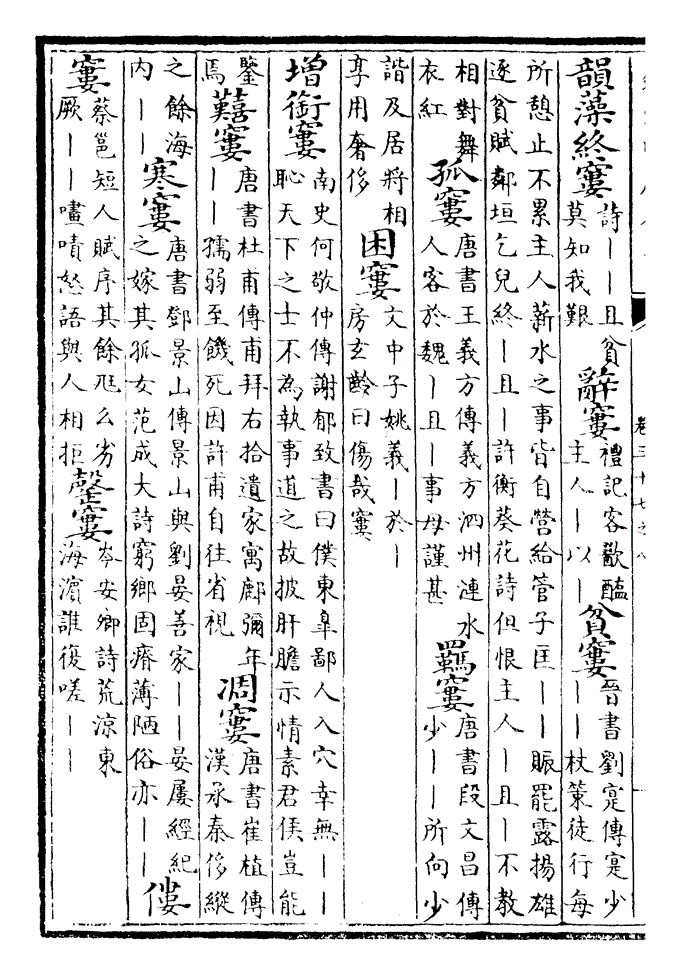 韻藻終窶詩——且貧莫知我艱辭窶禮記客歠醢主人—以—貧窶晉書劉寔傳寔少——杖策徒行每
所憩止不累主人薪水之事皆自營給管子匡——賑罷露揚雄逐貧賦鄰垣乞兒終—且—許衡葵花詩但恨主人—且—不教
相對舞衣紅孤窶唐書王義方傳義方泗州漣水人客於魏—且—事母謹甚羈窶唐書段文昌傳少——所向少
諧及居將相享用奢侈困窶文中子姚義—於—房玄齡曰傷哉窶
增銜窶南史何敬仲傳謝郁致書曰僕東皋鄙人入穴幸無——恥天下之士不為執事道之故披肝膽示情素君侯豈能
鑒焉囏窶唐書杜甫傳甫拜右拾遺家寓鄜彌年——孺弱至餓死因許甫自往省視凋窶唐書崔植傳漢承秦侈縱
之餘海內——寒窶唐書鄧景山傳景山與劉晏善家——晏屢經紀之嫁其孤女范成大詩窮鄉固瘠薄陋俗亦——僂
窶蔡邕短人賦序其餘尫么劣厥——嘖怒語與人相拒罄窶岑安鄉詩荒涼東海濱誰復嗟——
卷三十七之八